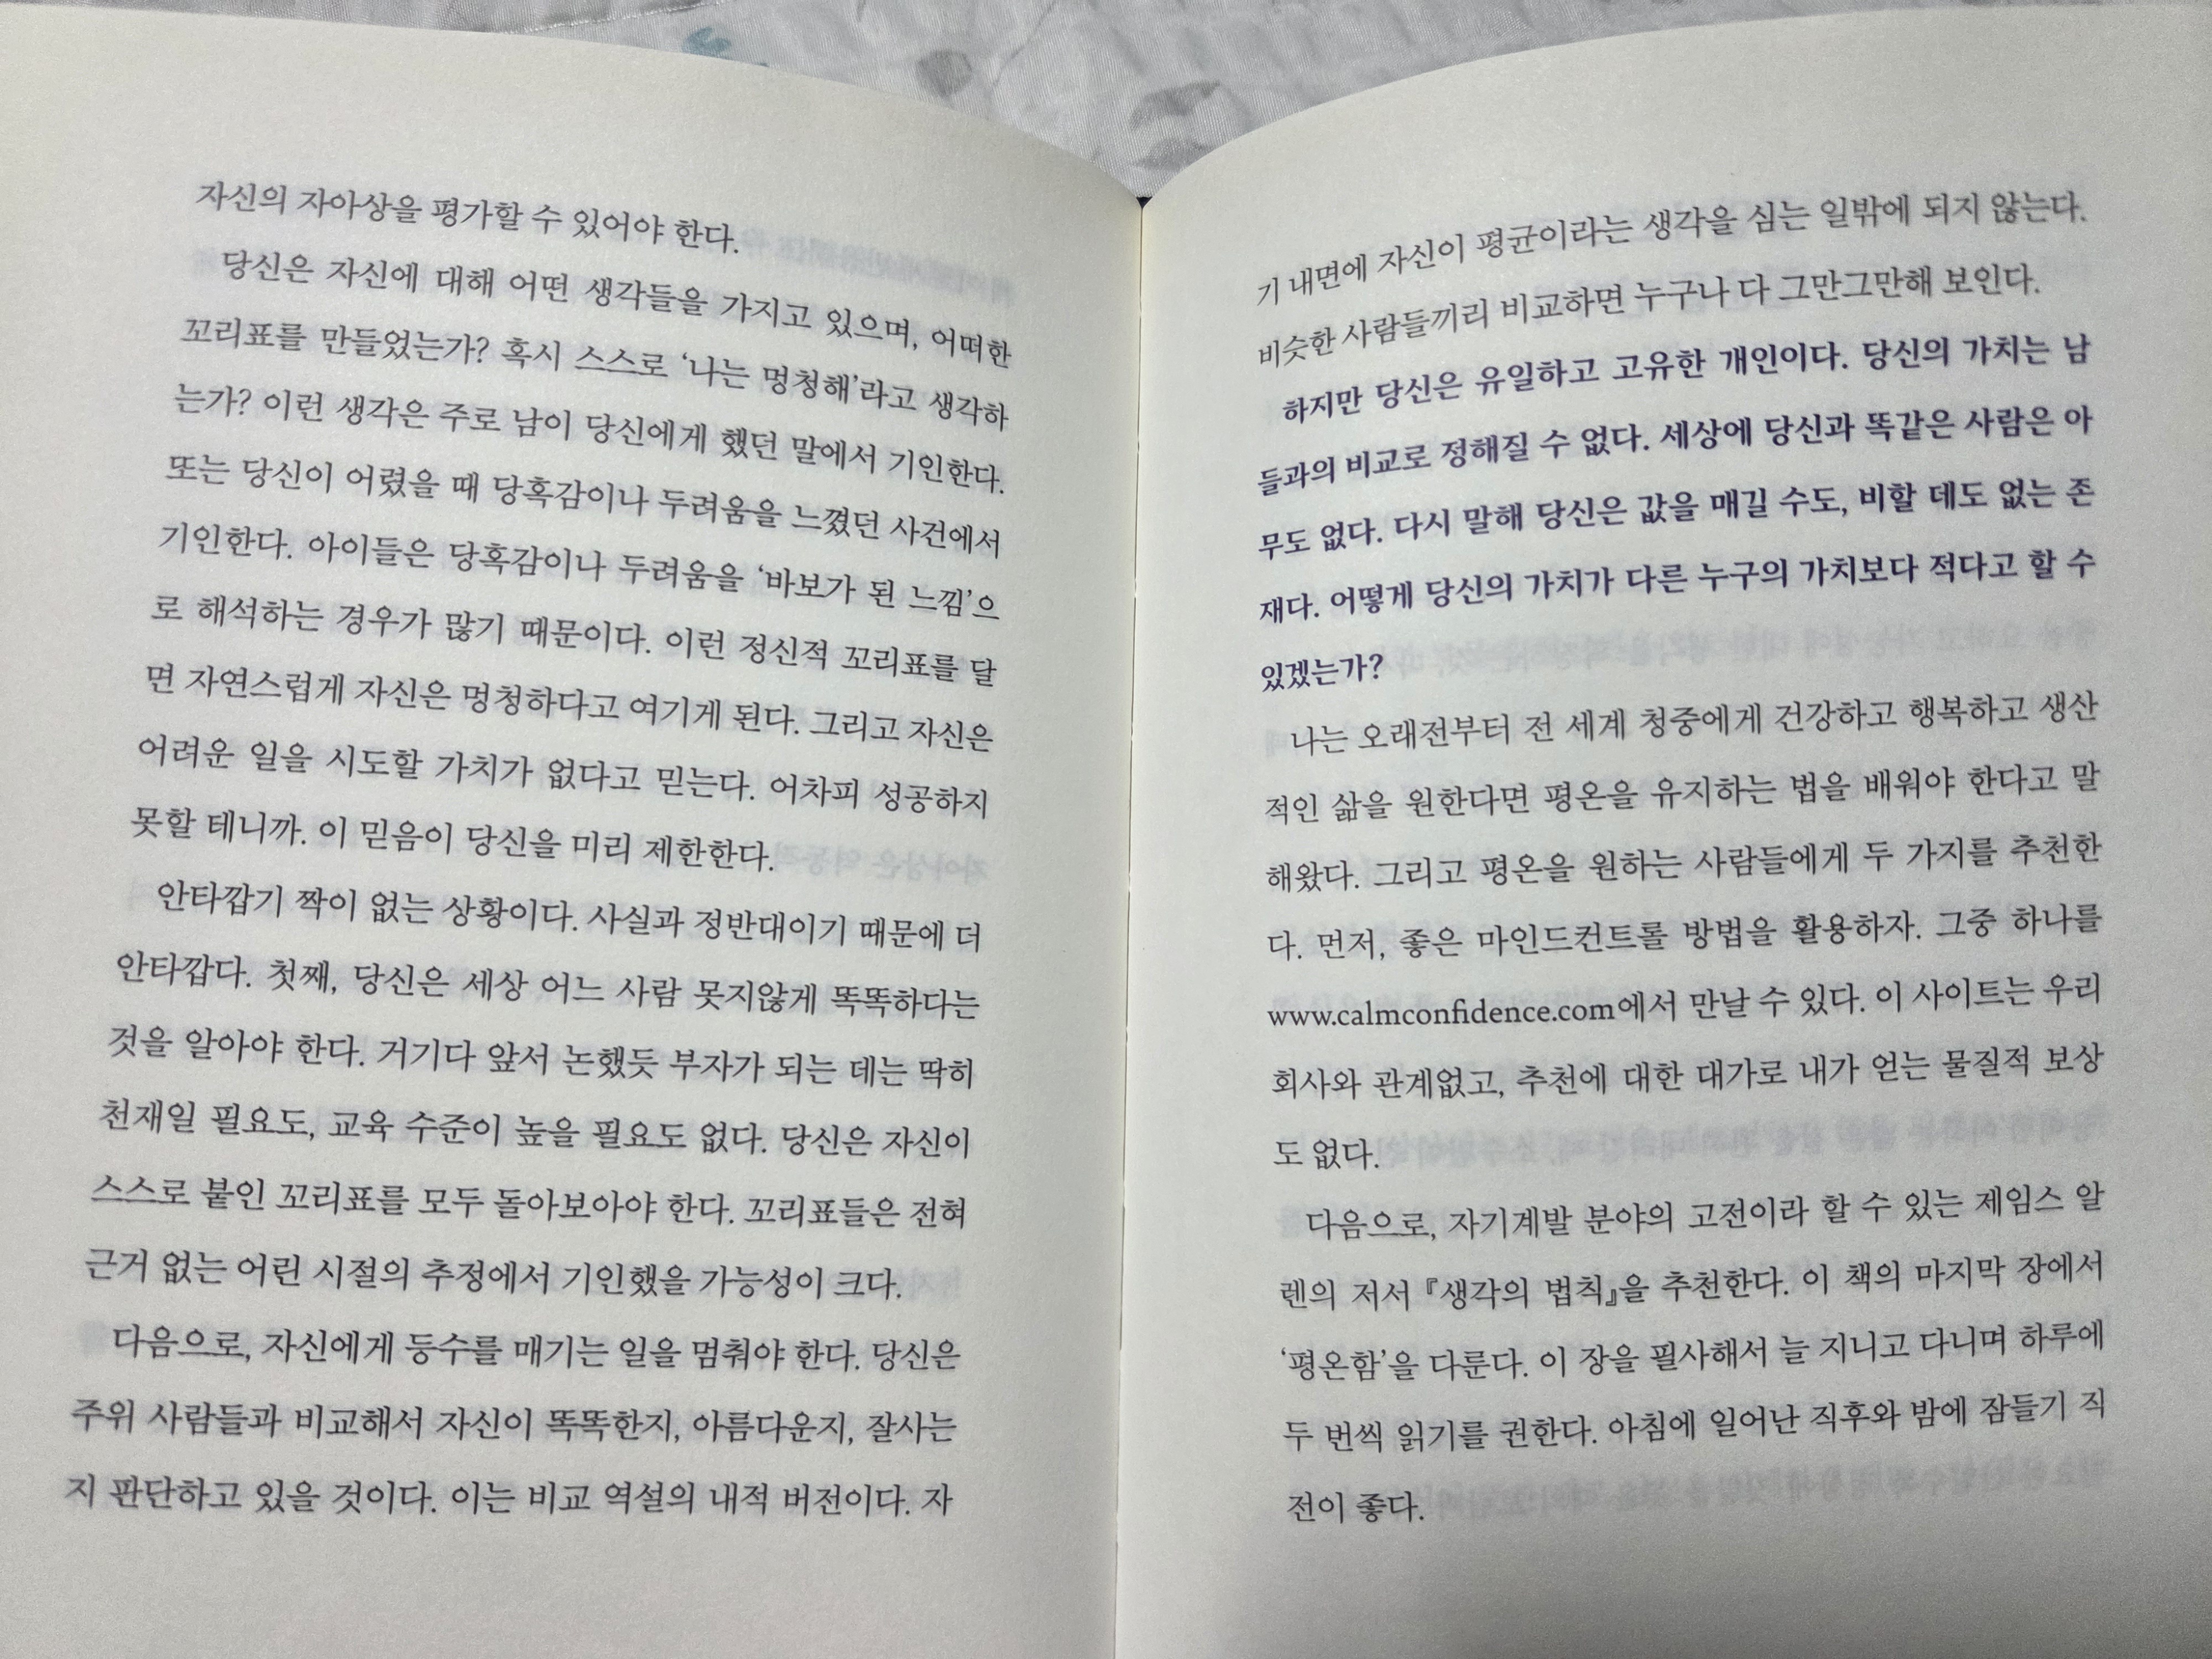 자신의 자아상을 평가할 수 있어야 한다.
당신은 자신에 대해 어떤 생각들을 가지고 있으며, 어떠한
꼬리표를 만들었는가? 혹시 스스로 ‘나는 멍청해’라고 생각하
는가? 이런 생각은 주로 남이 당신에게 했던 말에서 기인한다.
또는 당신이 어렸을 때 당혹감이나 두려움을 느꼈던 사건에서
기인한다. 아이들은 당혹감이나 두려움을 ‘바보가 된 느낌’으
로 해석하는 경우가 많기 때문이다. 이런 정신적 꼬리표를 달
면 자연스럽게 자신은 멍청하다고 여기게 된다. 그리고 자신은
어려운 일을 시도할 가치가 없다고 믿는다. 어차피 성공하지
못할 테니까. 이 믿음이 당신을 미리 제한한다.
안타깝기 짝이 없는 상황이다. 사실과 정반대이기 때문에 더
안타깝다. 첫째, 당신은 세상 어느 사람 못지않게 똑똑하다는
것을 알아야 한다. 거기다 앞서 논했듯 부자가 되는 데는 딱히
천재일 필요도, 교육 수준이 높을 필요도 없다. 당신은 자신이
스스로 붙인 꼬리표를 모두 돌아보아야 한다. 꼬리표들은 전혀
근거 없는 어린 시절의 추정에서 기인했을 가능성이 크다.
다음으로, 자신에게 등수를 매기는 일을 멈춰야 한다. 당신은
주위 사람들과 비교해서 자신이 똑똑한지, 아름다운지, 잘사는
지 판단하고 있을 것이다. 이는 비교 역설의 내적 버전이다. 자
기 내면에 자신이 평균이라는 생각을 심는 일밖에 되지 않는다.
비슷한 사람들끼리 비교하면 누구나 다 그만그만해 보인다.
하지만 당신은 유일하고 고유한 개인이다. 당신의 가치는 남
들과의 비교로 정해질 수 없다. 세상에 당신과 똑같은 사람은 아
무도 없다. 다시 말해 당신은 값을 매길 수도, 비할 데도 없는 존
재다. 어떻게 당신의 가치가 다른 누구의 가치보다 적다고 할 수
있겠는가?
나는 오래전부터 전 세계 청중에게 건강하고 행복하고 생산
적인 삶을 원한다면 평온을 유지하는 법을 배워야 한다고 말
해왔다. 그리고 평온을 원하는 사람들에게 두 가지를 추천한
다. 먼저, 좋은 마인드컨트롤 방법을 활용하자. 그중 하나를
www.calmconfidence.com에서 만날 수 있다. 이 사이트는 우리
회사와 관계없고, 추천에 대한 대가로 내가 얻는 물질적 보상
도 없다.
다음으로, 자기계발 분야의 고전이라 할 수 있는 제임스 알
렌의 저서 『생각의 법칙』을 추천한다. 이 책의 마지막 장에서
‘평온함’을 다룬다. 이 장을 필사해서 늘 지니고 다니며 하루에
두 번씩 읽기를 권한다. 아침에 일어난 직후와 밤에 잠들기 직
전이 좋다.